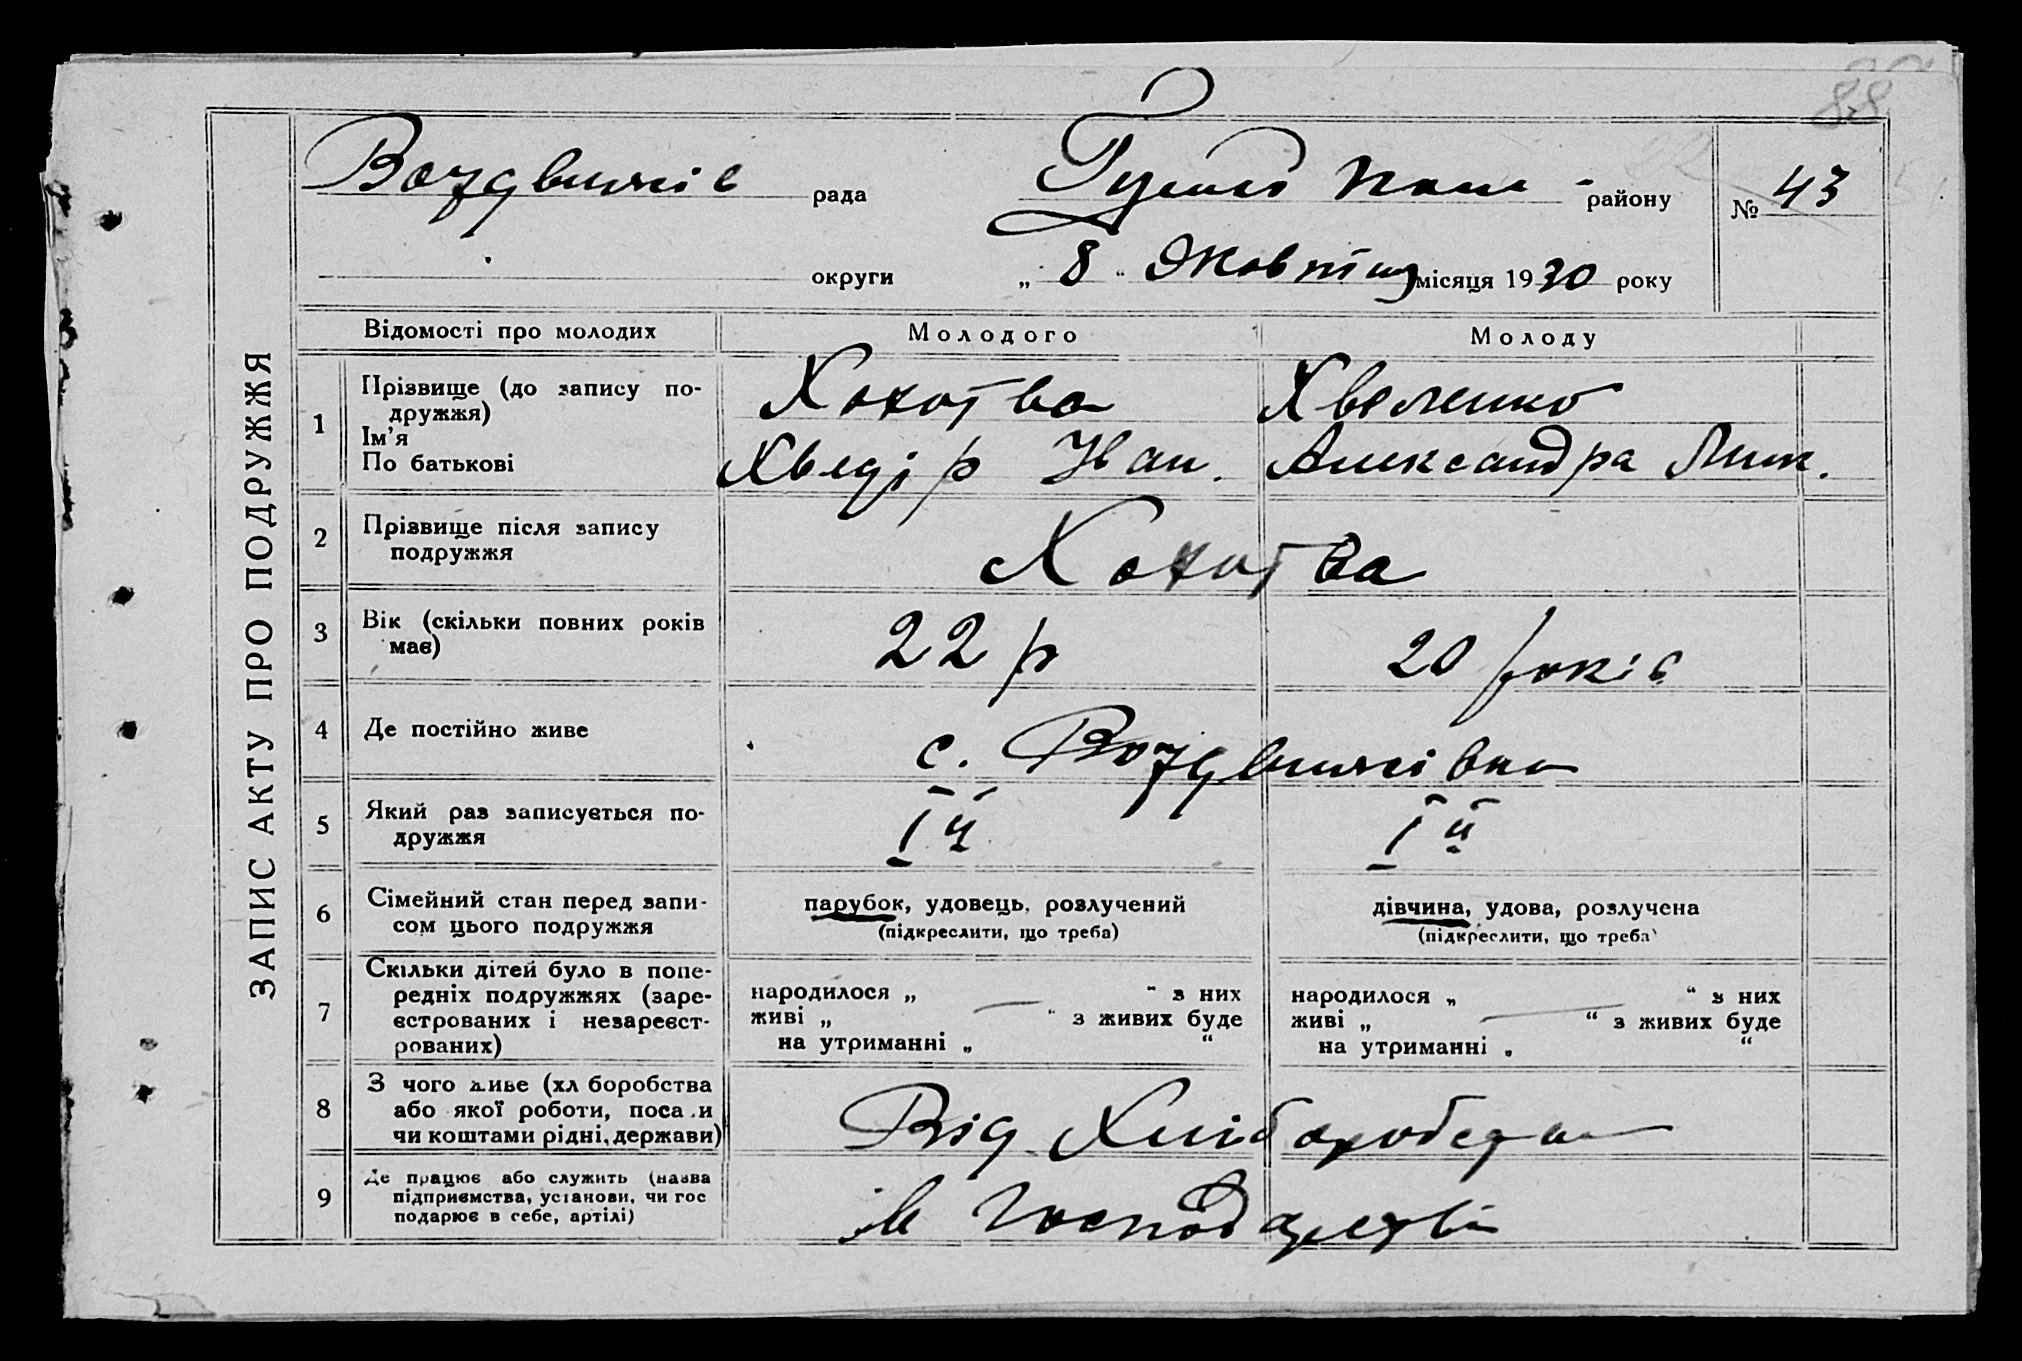 88
ЗАПИС АКТУ ПРО ПОДРУЖЖЯ
Воздвижів рада
району
№ 43
округи „ 8 “ Жовтня місяця 1930 року
Відомості про молодих Молодого Молоду
1 Прізвище (до запису по-
дружжя)
Ім’я
По батькові
Хохотва Хвеленко
Хведір Иван. Александра Мик.
2 Прізвище після запису
подружжя
Хохотва
3 Вік (скільки повних років
має)
22 р 20 років
4 Де постійно живе
с. Воздвижівка
5 Який раз записується по-
дружжя
Iй Iй
6 Сімейний стан перед запи-
сом цього подружжя
парубок, удовець, розлучений
(підкреслити, що треба)
дівчина, удова, розлучена
(підкреслити, що треба)
7 Скільки дітей було в попе-
редніх подружжях (заре-
єстрованих і незареєст-
рованих)
народилося „ — “ з них
живі „ “ з живих буде
на утриманні „ “
народилося „ — “ з них
живі „ “ з живих буде
на утриманні „ “
8 З чого живе (хліборобства
або якої роботи, посади
чи коштами рідні, держави)
Від Хліборобства
9 Де працює або служить (назва
підприємства, установи, чи гос
подарює в себе, артілі)
в господарстві